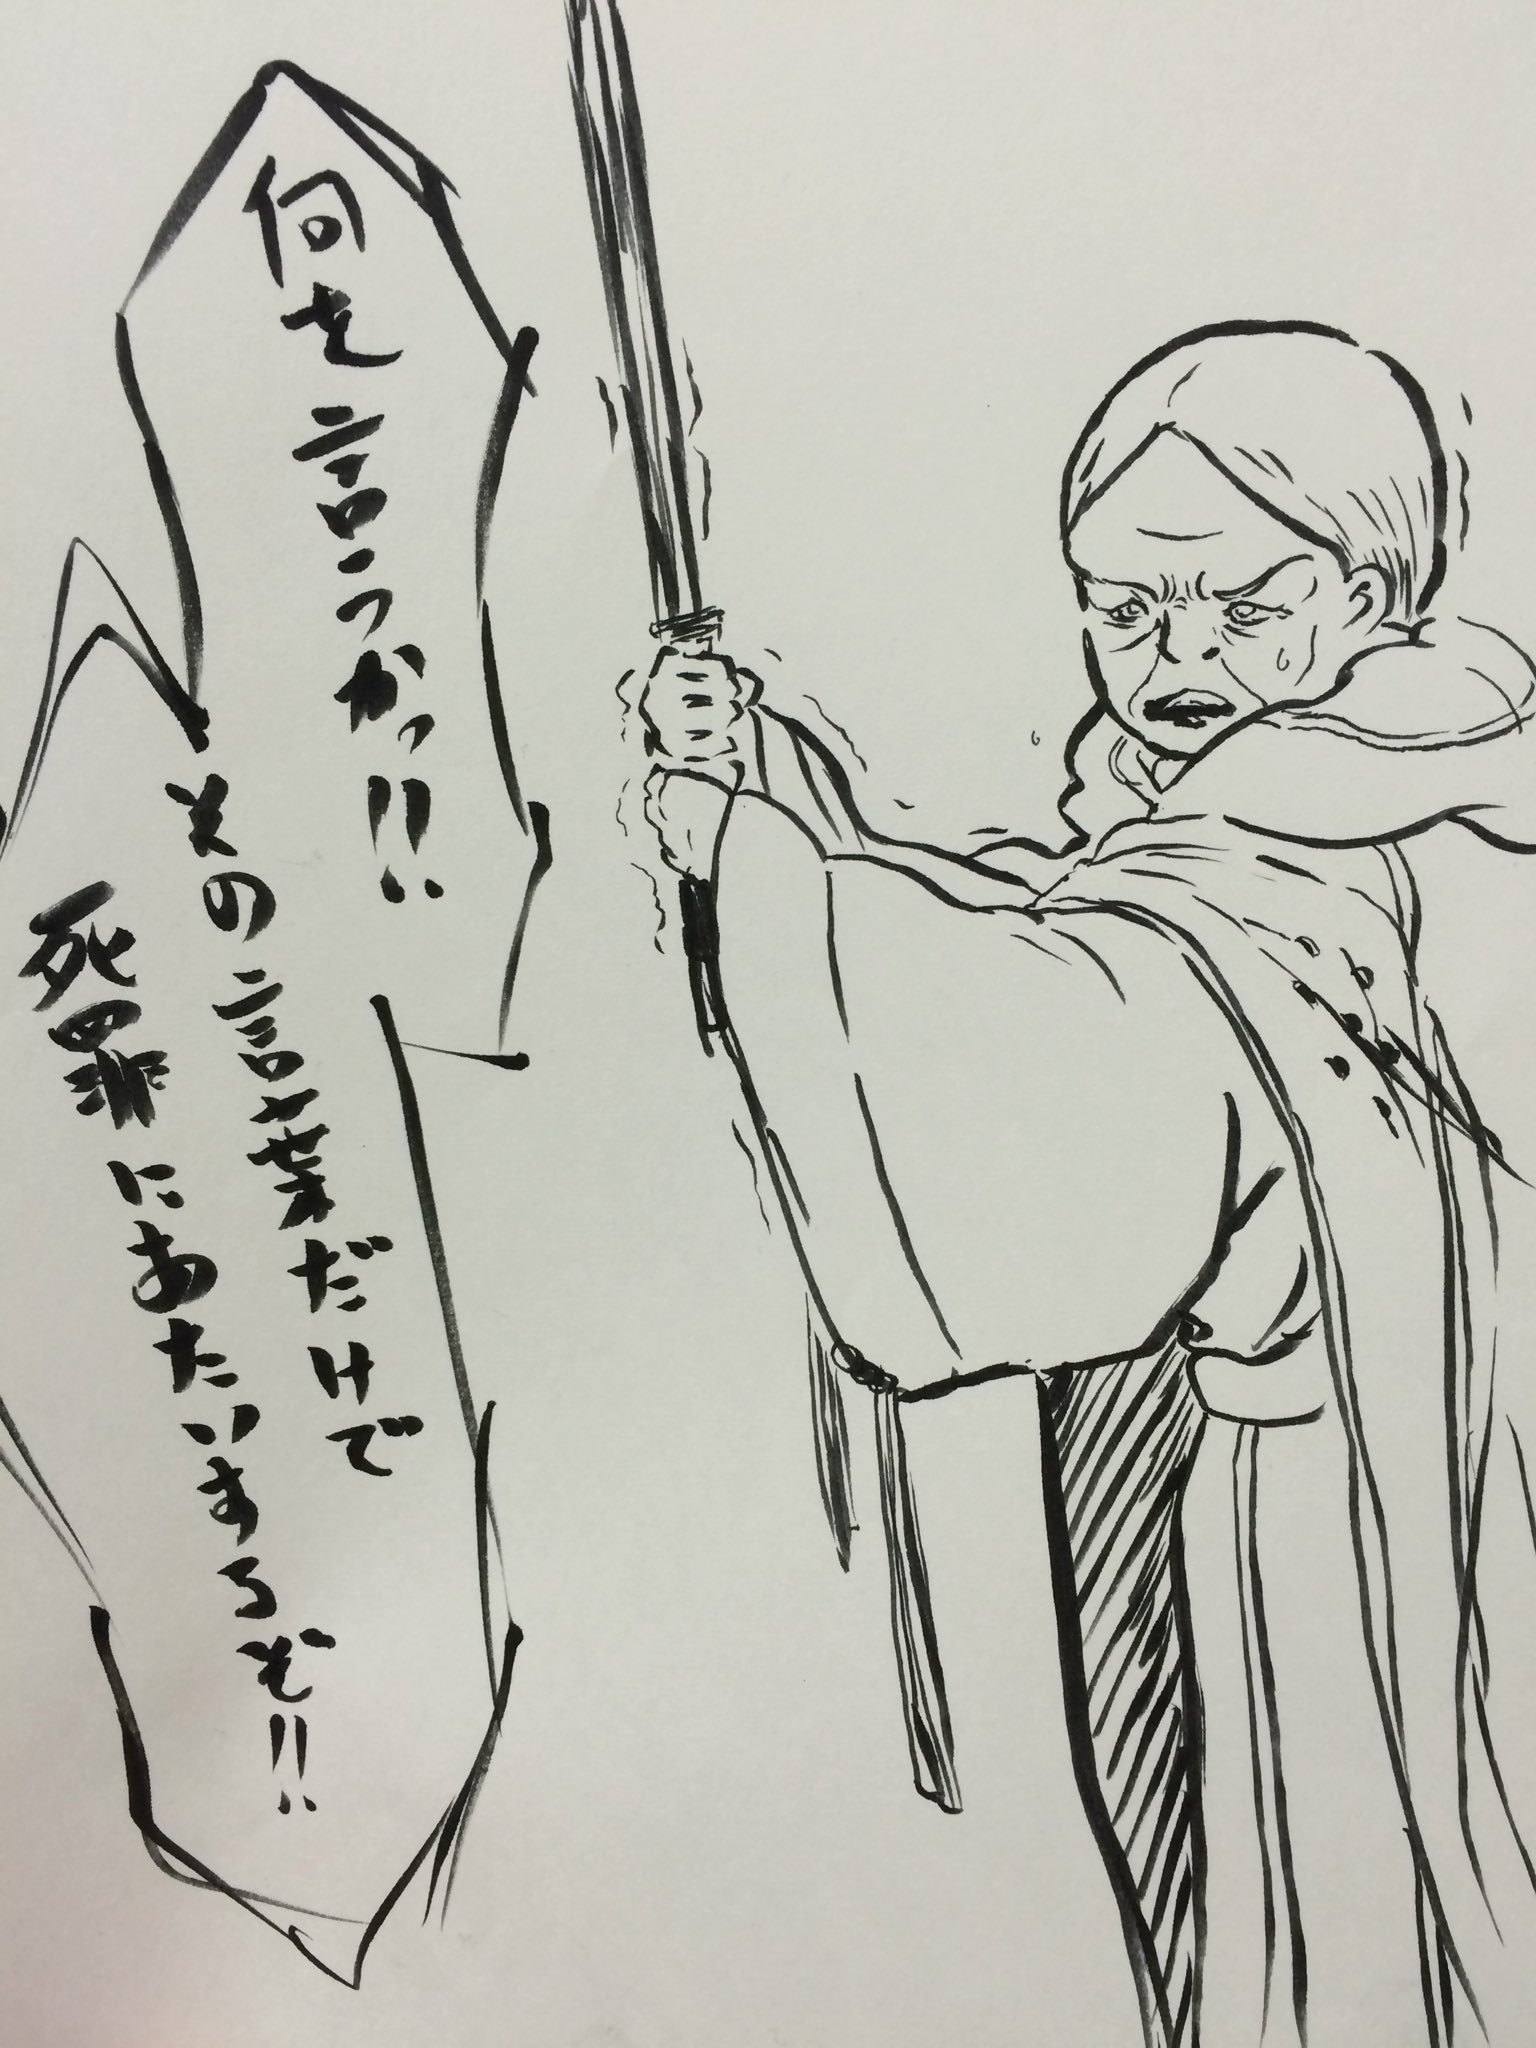 何を言うかっ!!
その言葉だけで
死罪にあたいするぞ!!